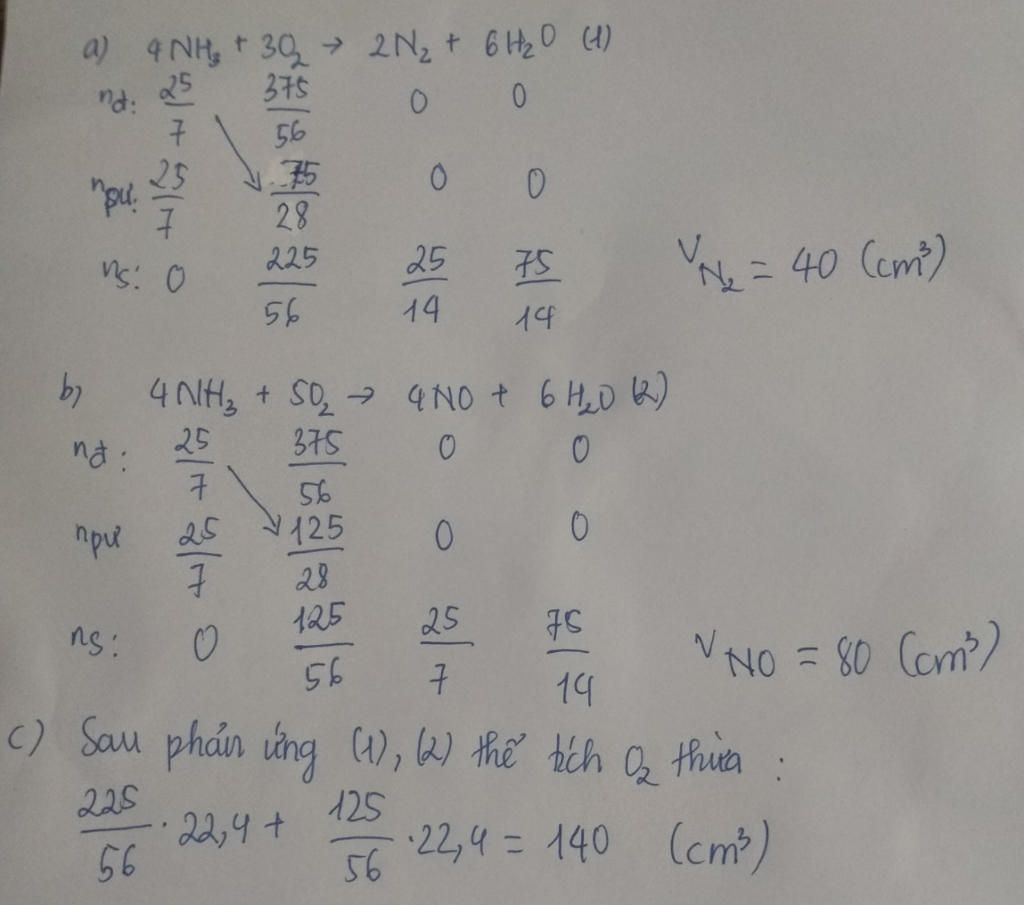 a) 4NH₃ + 3O₂ → 2N₂ + 6H₂O (1)
nđ: 25/7 375/56 0 0
npư: 25/7 75/28 0 0
ns: 0 225/56 25/14 75/14 V N₂ = 40 (cm³)
b) 4NH₃ + 5O₂ → 4NO + 6H₂O (2)
nđ: 25/7 375/56 0 0
npư 25/7 125/28 0 0
ns: 0 125/56 25/7 75/14 V NO = 80 (cm³)
c) Sau phản ứng (1), (2) thể tích O₂ thừa :
225/56 . 22,4 + 125/56 . 22,4 = 140 (cm³)